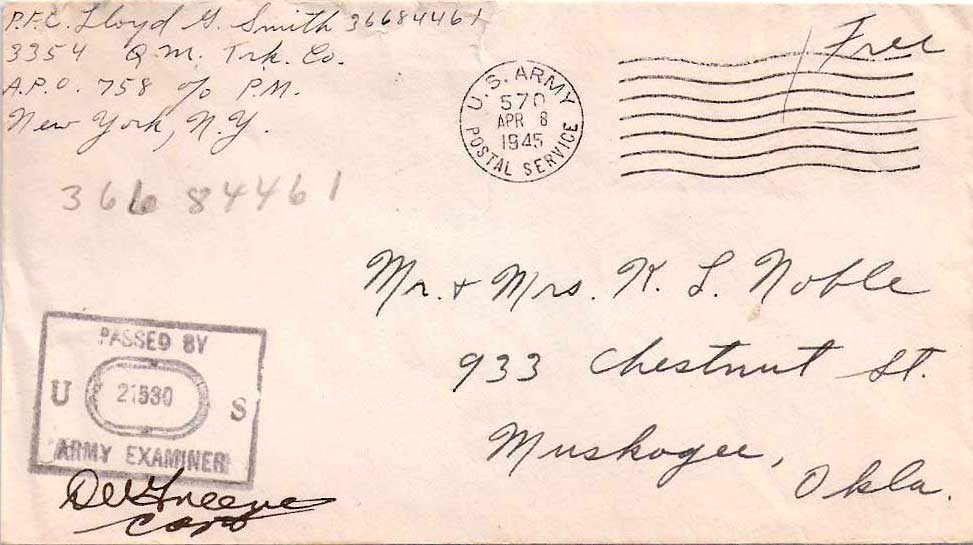 P.F.C. Lloyd G. Smith 36684461
3354 Q.M. Trk. Co.
A.P.O. 758 c/o P.M.
New York, N.Y.
Free
U.S. ARMY
570
APR 8
1945
POSTAL SERVICE
366 84461
Mr. + Mrs. K. L. Noble
933 Chestnut St.
Muskogee,
Okla.
PASSED BY
U 21530 S
ARMY EXAMINER